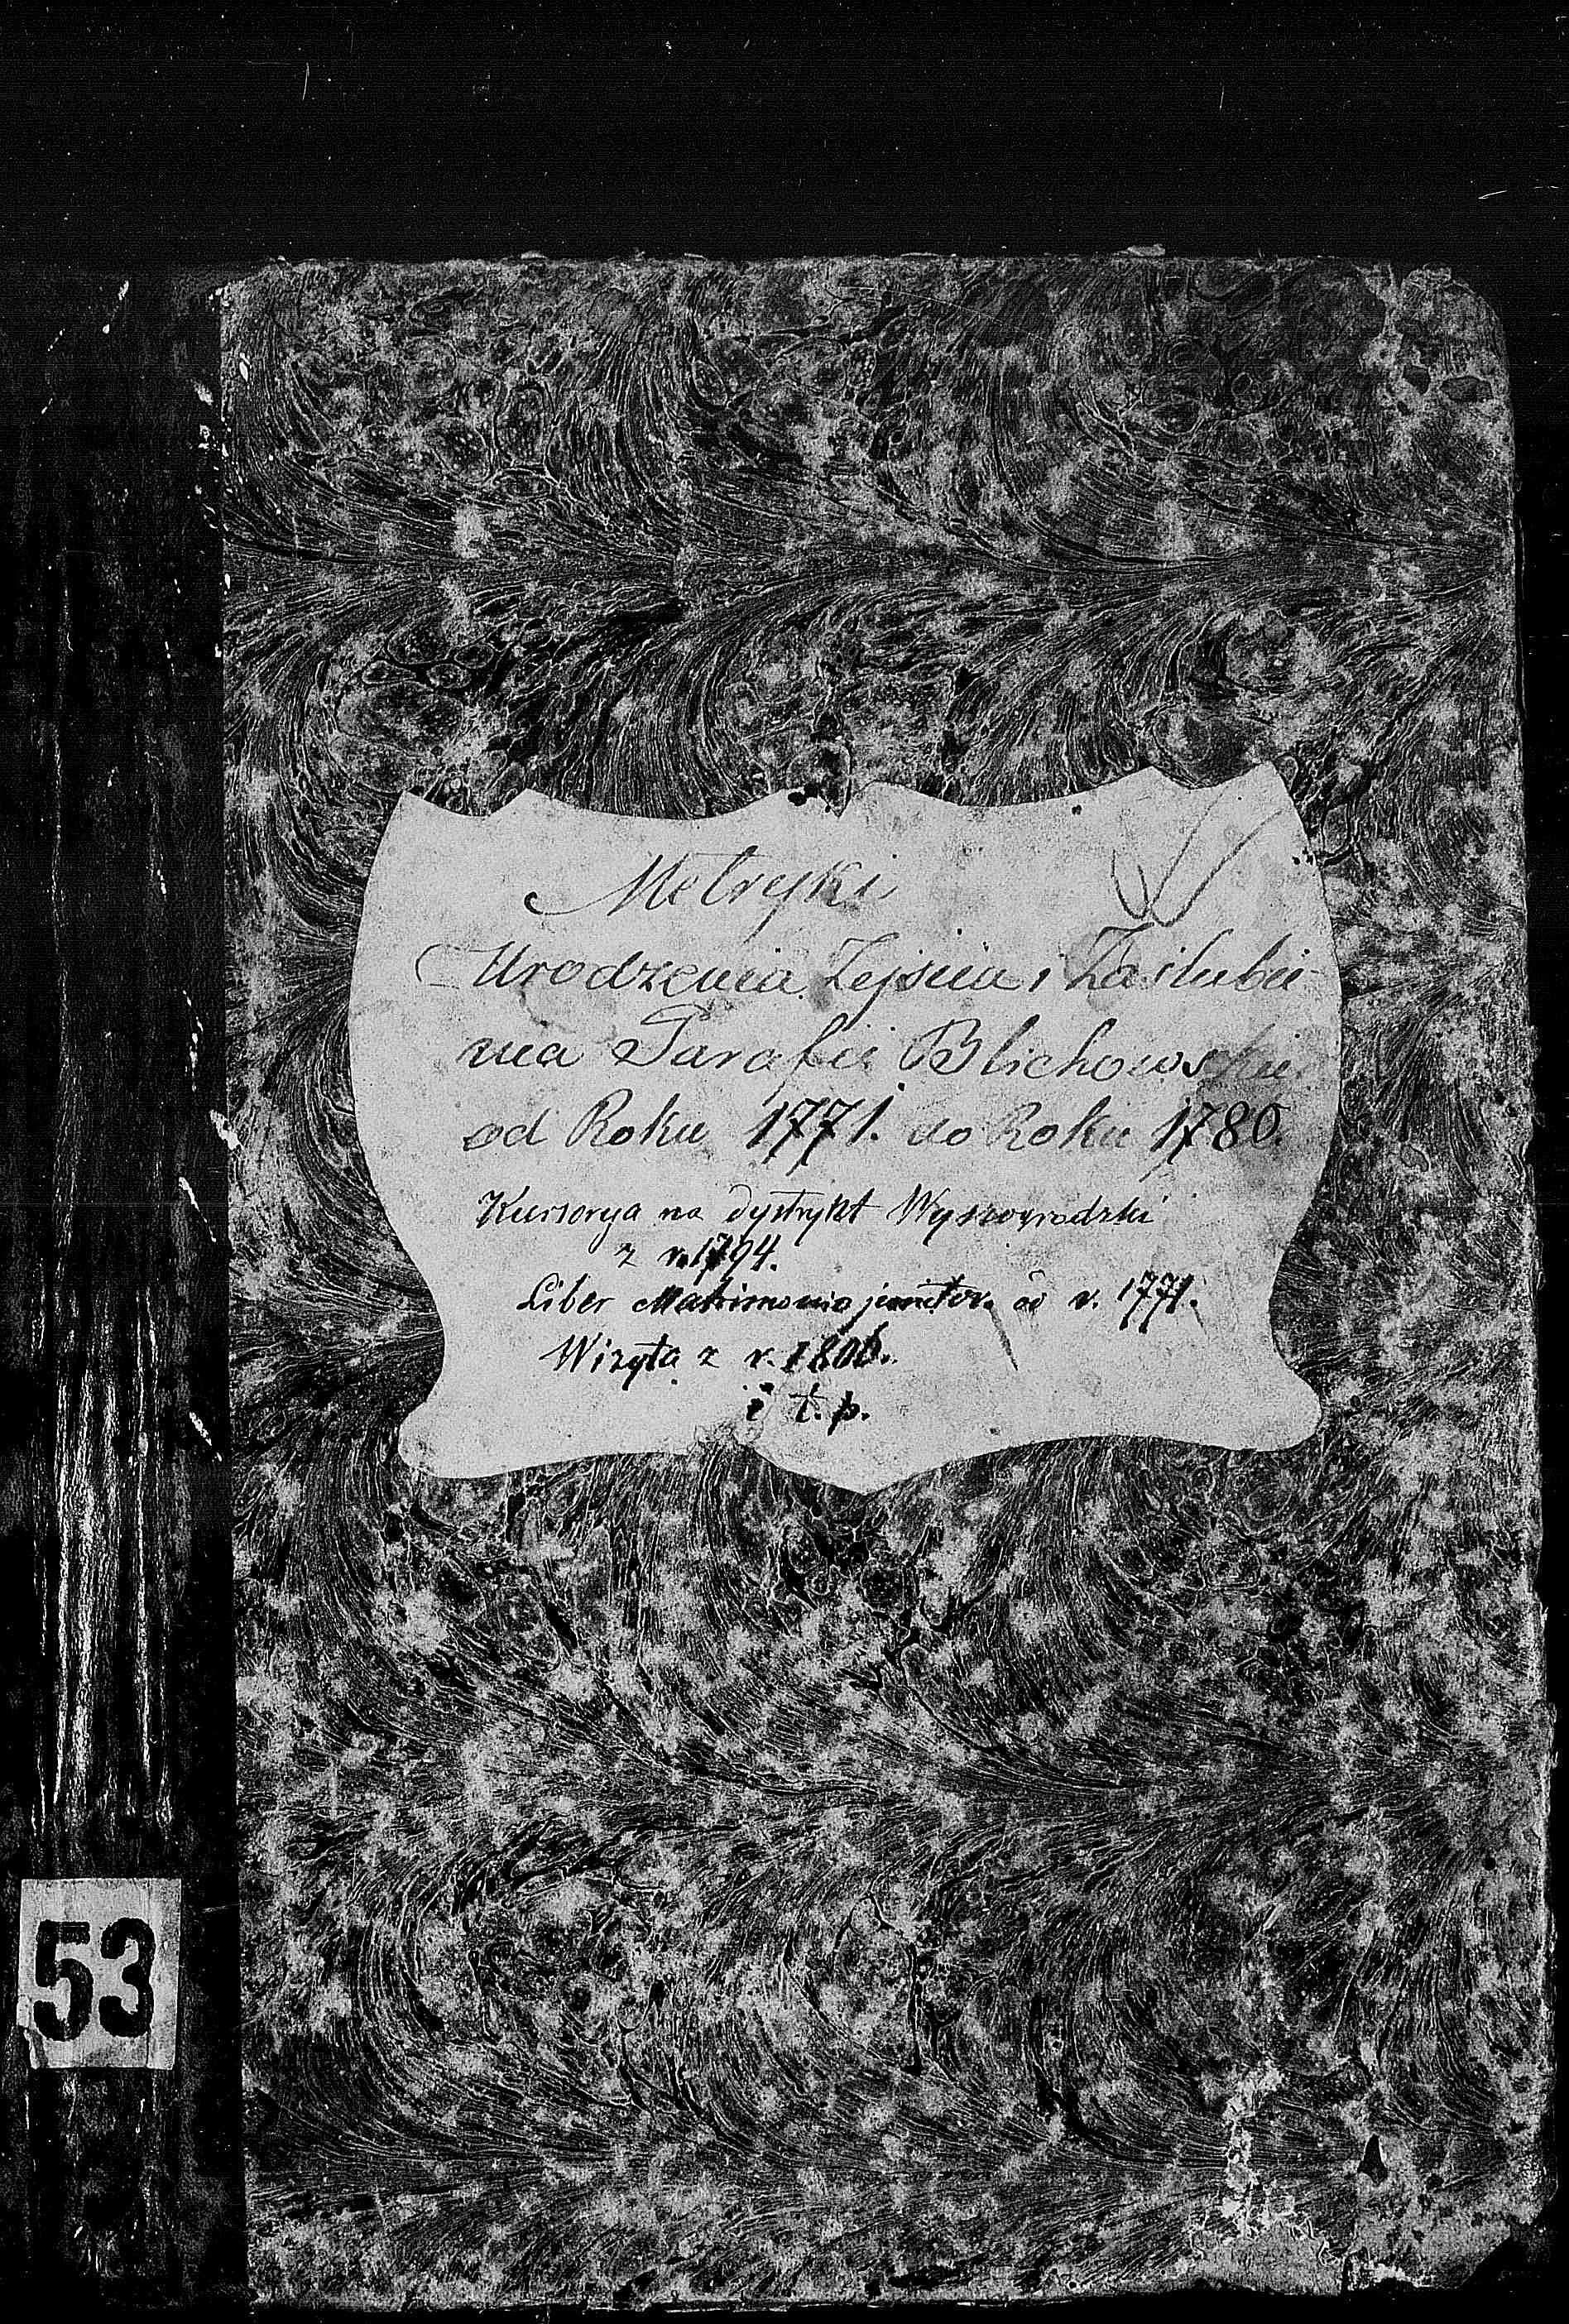 Metryki
Urodzenia Zejscia i Zaslubie-
nia Parafii Blichowskie
od Roku 1771. do Roku 1780.
Kursorya na dystrykt Wyszogrodzki
z r. 1794.
Liber Matrimonio junctor. od r. 1771.
Wizyta z r. 1806.
i t. p.
53